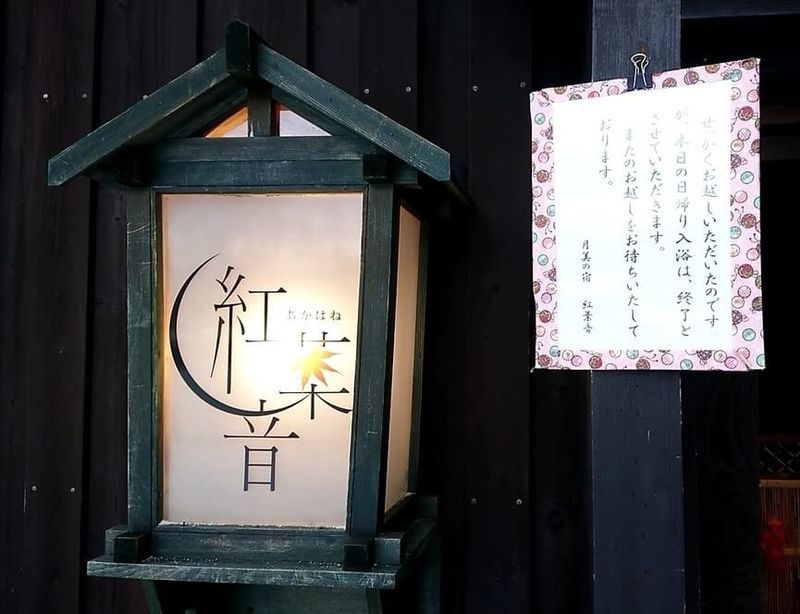 紅葉音
あかはね
せっかくお越しいただいたのです
が、本日の日帰り入浴は、終了と
させていただきます。
またのお越しをお待ちいたして
おります。
月美の宿 紅葉音